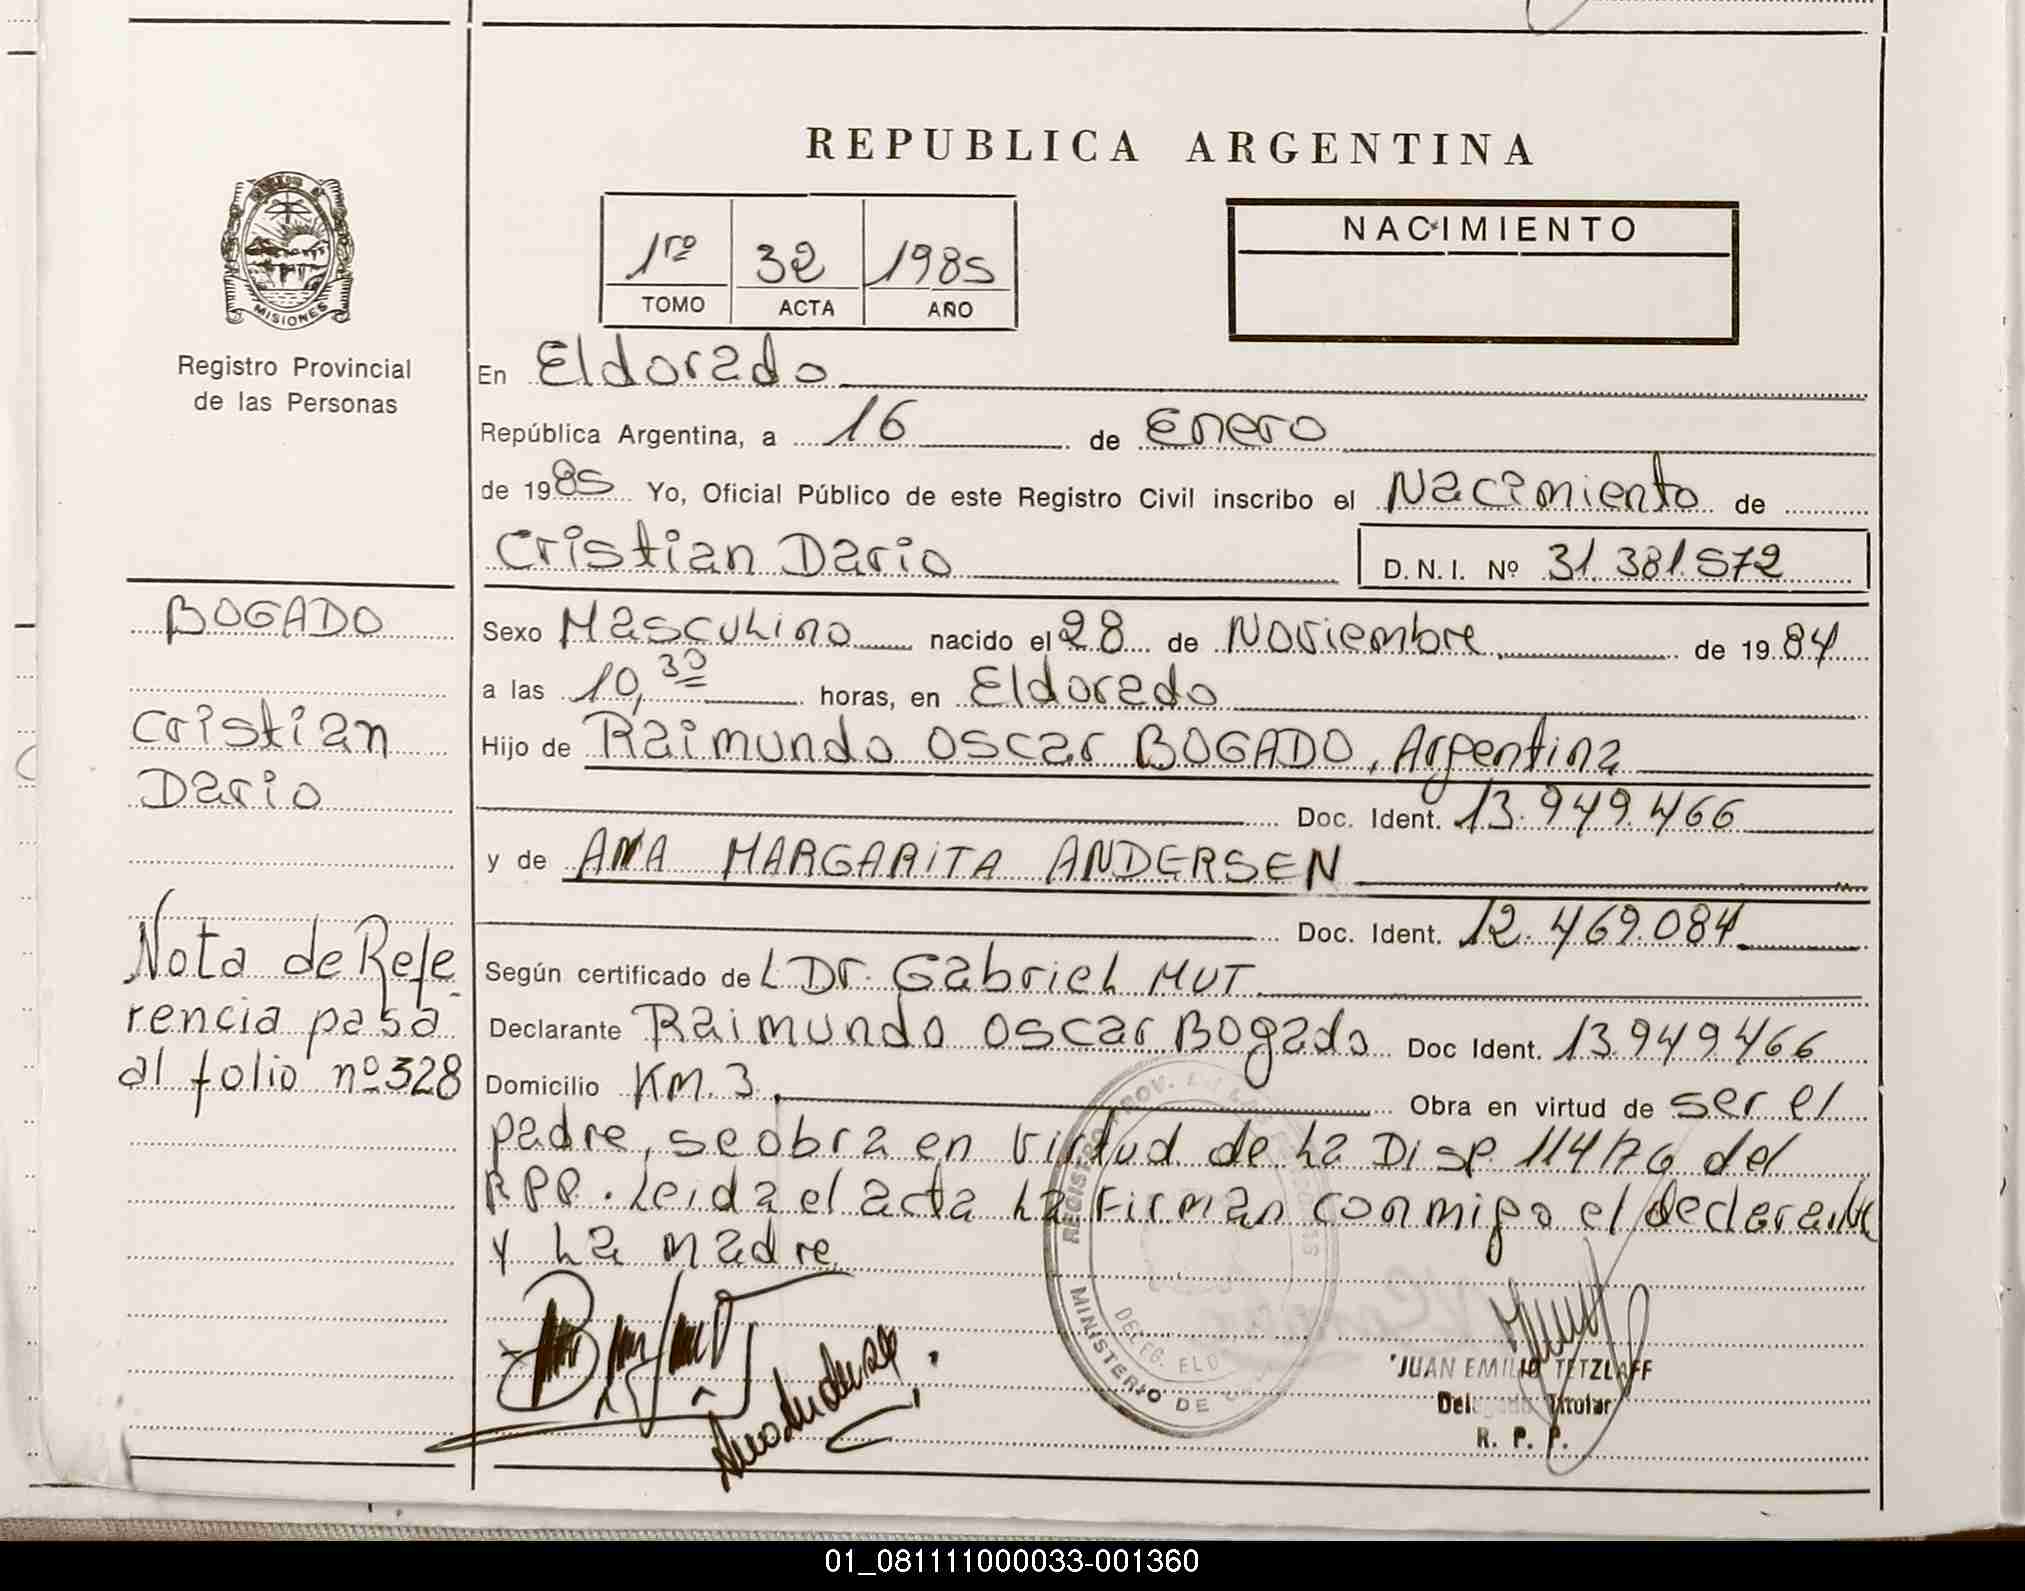 REPUBLICA ARGENTINA
NACIMIENTO
1ro 32 1985
TOMO ACTA AÑO
MISIONES
Registro Provincial
de las Personas
En Eldorado
República Argentina, a 16 de Enero
de 1985 Yo, Oficial Público de este Registro Civil inscribo el Nacimiento de
Cristian Dario D.N.I. Nº 31.381.572
BOGADO
Cristian
Dario
Nota de Refe
rencia pasa
al folio nº 328
Sexo Masculino nacido el 28 de Noviembre de 1984
a las 10,30 horas, en Eldorado
Hijo de Raimundo Oscar BOGADO, Argentina
Doc. Ident. 13.949.466
y de ANA MARGARITA ANDERSEN
Doc. Ident. 12.469.084
Según certificado del Dr. Gabriel MUT
Declarante Raimundo Oscar Bogado Doc Ident. 13.949.466
Domicilio Km. 3 Obra en virtud de ser el
padre, se obra en virtud de la Disp. 114/76 del
RPP. Leida el acta la firman conmigo el declarante
y la madre
REGISTRO PROV. DE LAS
MINISTERIO DE
DELEG. ELD
JUAN EMILIO TETZLAFF
Delegado Titular
R. P. P.
01_081111000033-001360